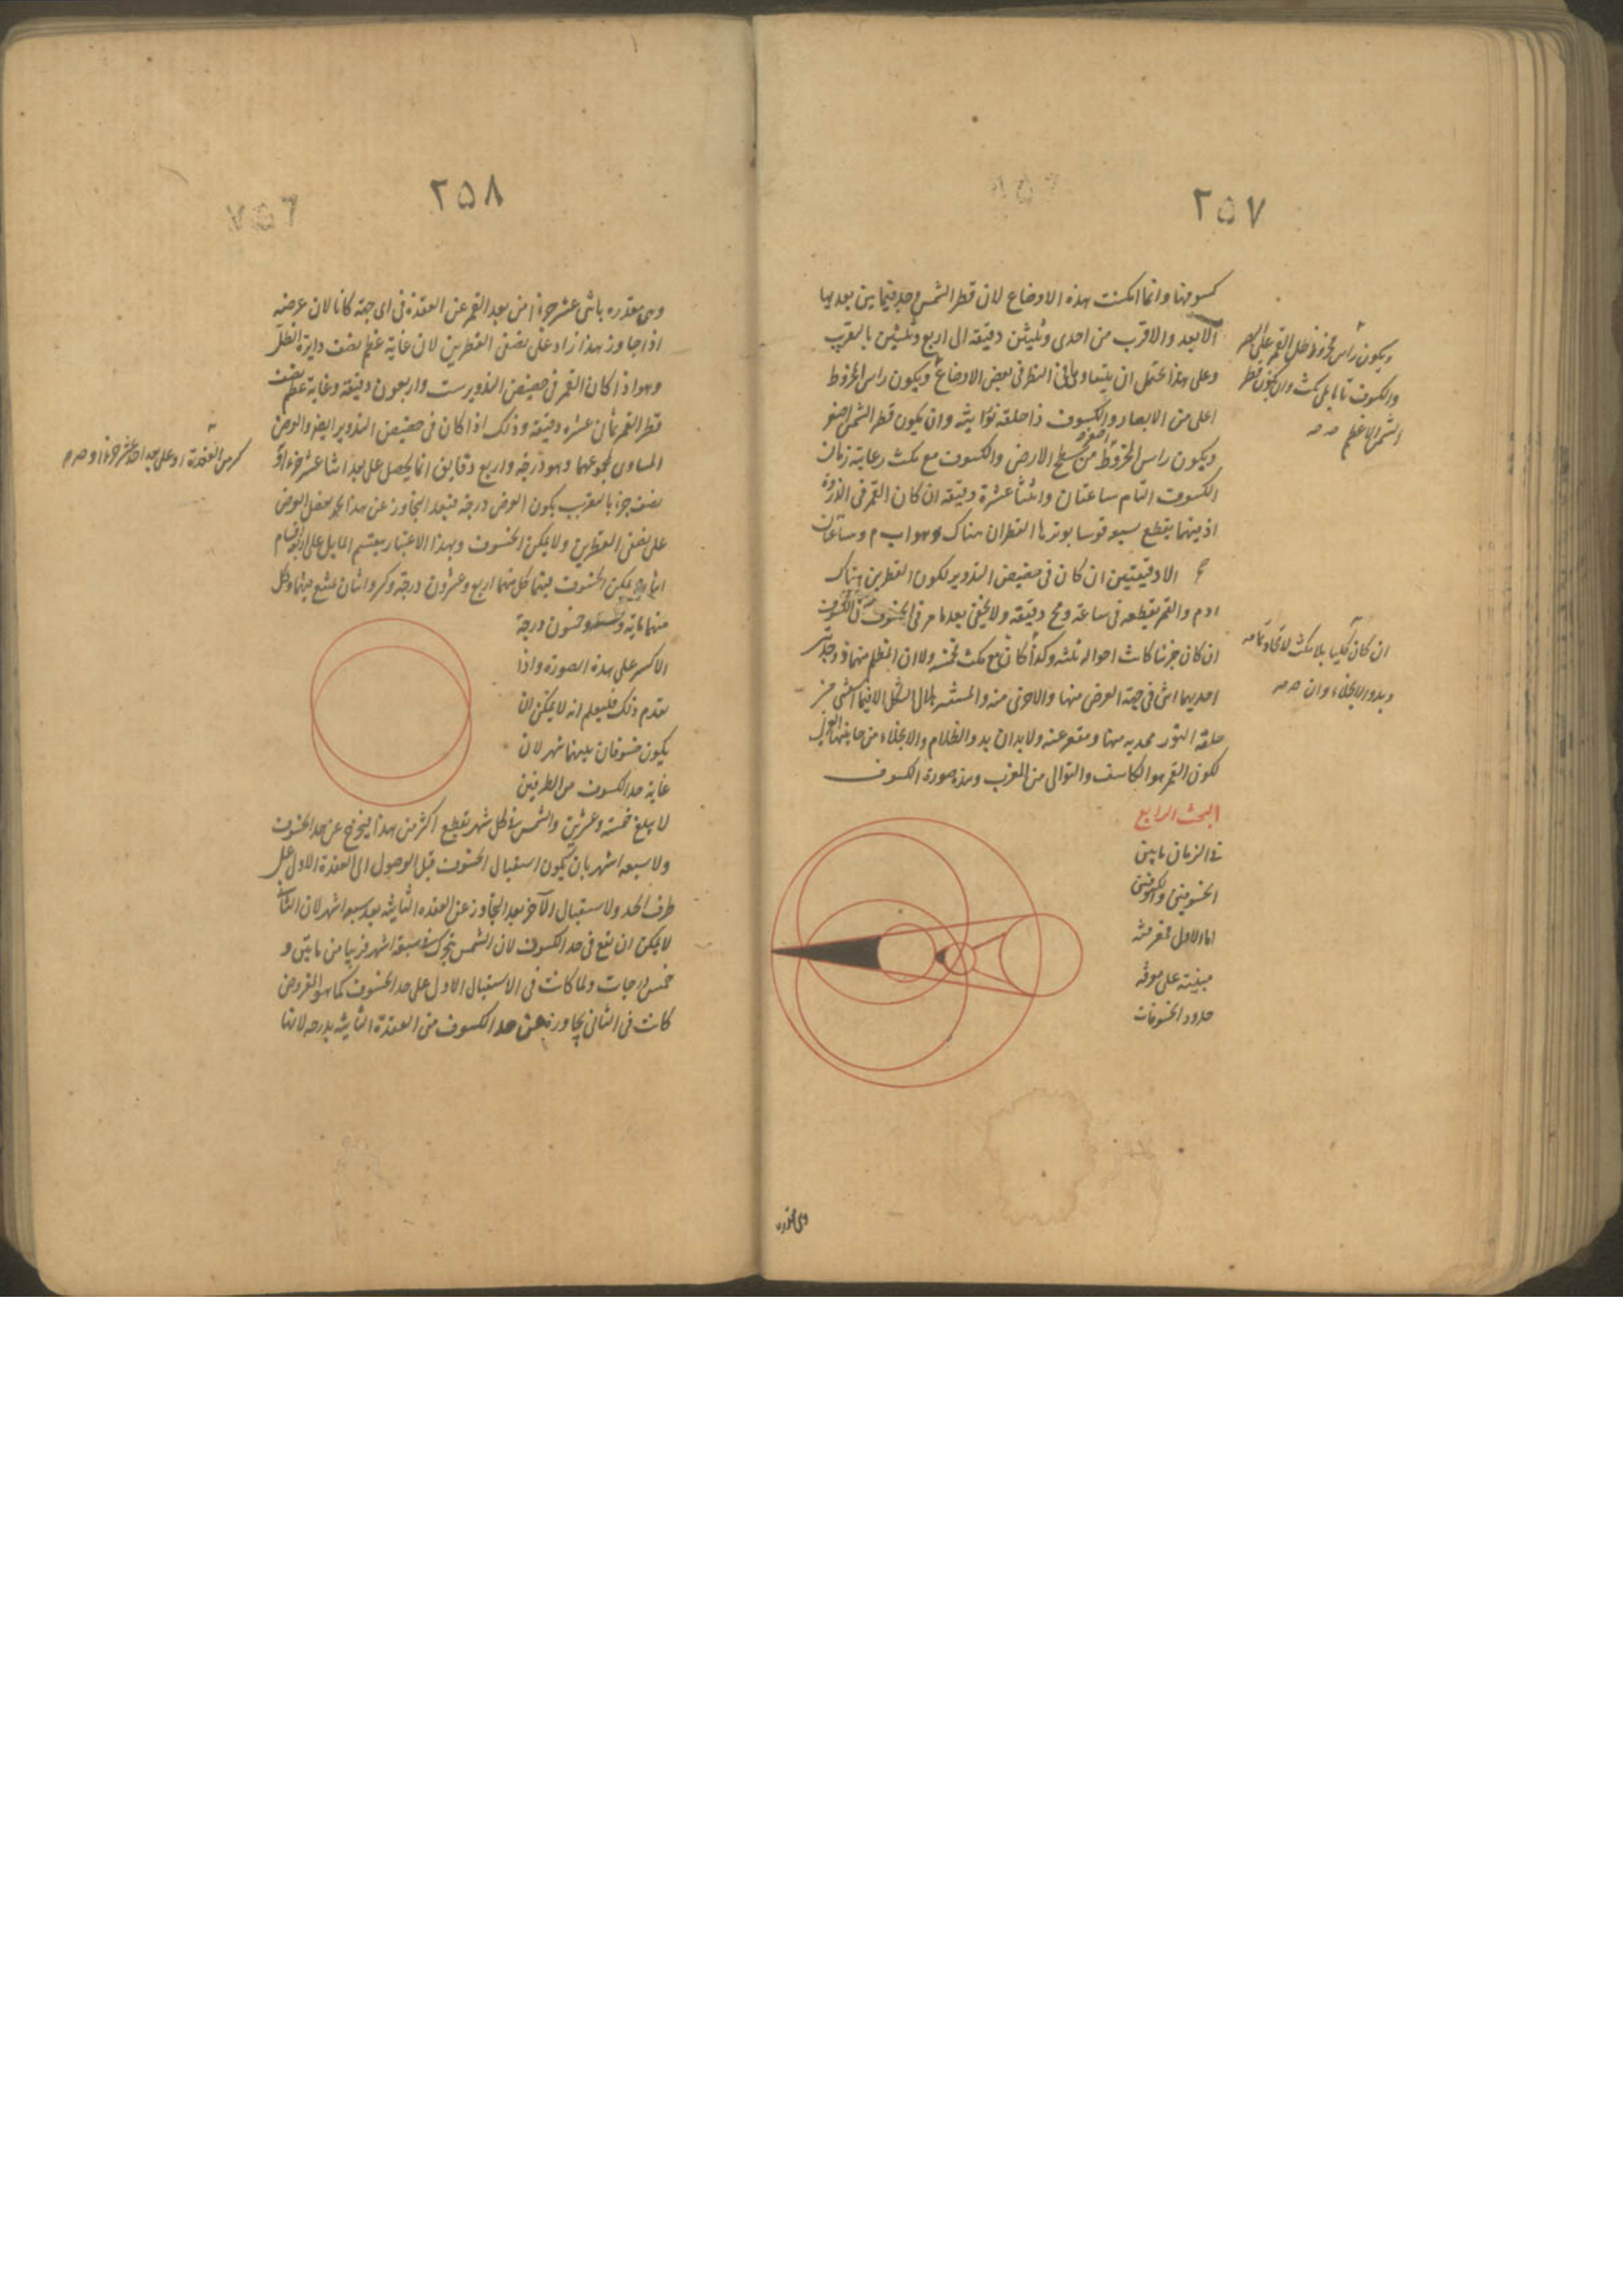 ٢٥٧
كسوفها وانما امكنت هذه الاوضاع لان قطر الشمس وجد فيما بين بعديها
الابعد والاقرب من احدى وثلثين دقيقة الى اربع وثلثين بالتقريب
وعلى هذا يحتمل ان يتساويا فى النظر فى بعض الاوضاع ويكون راس المخروط
اعلى من الابصار والكسوف ذا حلقة نورانية وان يكون قطر الشمس اصغر
ويكون راس المخروط من سطح الارض والكسوف مع مكث وغاية زمان
الكسوف التام ساعتان واثنتا عشرة دقيقة ان كان القمر فى الذروة
اذ فيهما يقطع بسيره قوسا يوترها القطران هناك وهو ا ب م وساعتان
الا دقيقتين ان كان فى حضيض التدوير لكون القطرين هناك
ا د م والقمر يقطعه فى ساعة و دقيقة ولا يخفى بعد ما مر فى الخسوف ان الكسوف
ان كان جزئيا كانت احواله ثلثة وكذا ان كان مع مكث فخمسة ولا ان المظلم منها
احديهما اثنى فى جهة العرض منها والاخرى منه والمستنير هلالى الشكل الا فيما
حلقة النور محدبه منها ومقعر عنه ولا بد ان يبدو الظلام والانجلاء من جانبها
لكون القمر هو الكاسف والتوالى من المغرب وهذه صورة الكسوف
البحث الرابع
فى الزمان ما بين
الخسوفين والكسوفين
اما الاول فمعرفته
مبنية على معرفة
حدود الخسوفات
ويكون راس مخروط ظل القمر على البصر
والكسوف تاما بلا مكث وان يكون قطر
الشمس الاعظم
ان كان كليا بلا مكث
وبدو الانجلاء وان
وهى مقدرة
٢٥٨
وهى مقدرة باثنى عشر جزءا من بعد القمر عن العقدة فى اى جهة كانا لان عرضه
اذا جاوز هذا زاد على نصفى القطرين لان غاية عظم نصف دايرة الظل
وهو اذ اكان القمر فى حضيض التدوير ست واربعون دقيقة وغاية عظم نصف
قطر القمر ثمان عشرة دقيقة وذلك اذا كان فى حضيض التدوير ايضا والعرض
المساوى لمجموعهما وهو درجة واربع دقايق انما يحصل على بعد اثنا عشر جزءا او
نصف جزء بالتقريب يكون العرض درجة فبعد التجاوز عن هذا الحد يفضل العرض
على نصفى القطرين ولا يمكن الخسوف وبهذا الاعتبار ينقسم المايل على اربعة اقسام
اثنان يمكن الخسوف فيهما كل منهما اربع وعشرون درجة وكسر واثنان يمتنع فيهما وكل
منهما مائة وخمسون درجة
الا كسر على هذه الصورة واذا
تقدم ذلك فليعلم انه لا يمكن ان
يكون خسوفان بينهما شهر لان
غاية حد الكسوف من الطرفين
لا يبلغ خمسة وعشرين والشمس فى كل شهر تقطع اكثر من هذا فيخرج عن حد الخسوف
ولا سبعة اشهر بان يكون استقبال الخسوف قبل الوصول الى العقدة الاولى على
طرف الحد والاستقبال الآخر بعد التجاوز عن العقدة الثانية بعد سبعة اشهر لان الثانى
لا يمكن ان تقع فى حد الكسوف لان الشمس تتحرك فى سبعة اشهر قريبا من مايتين و
خمس درجات ولما كانت فى الاستقبال الاول على حد الخسوف كما هو المفروض
كانت فى الثانى تجاوزت عن حد الكسوف من العقدة الثانية بدرجة لانها